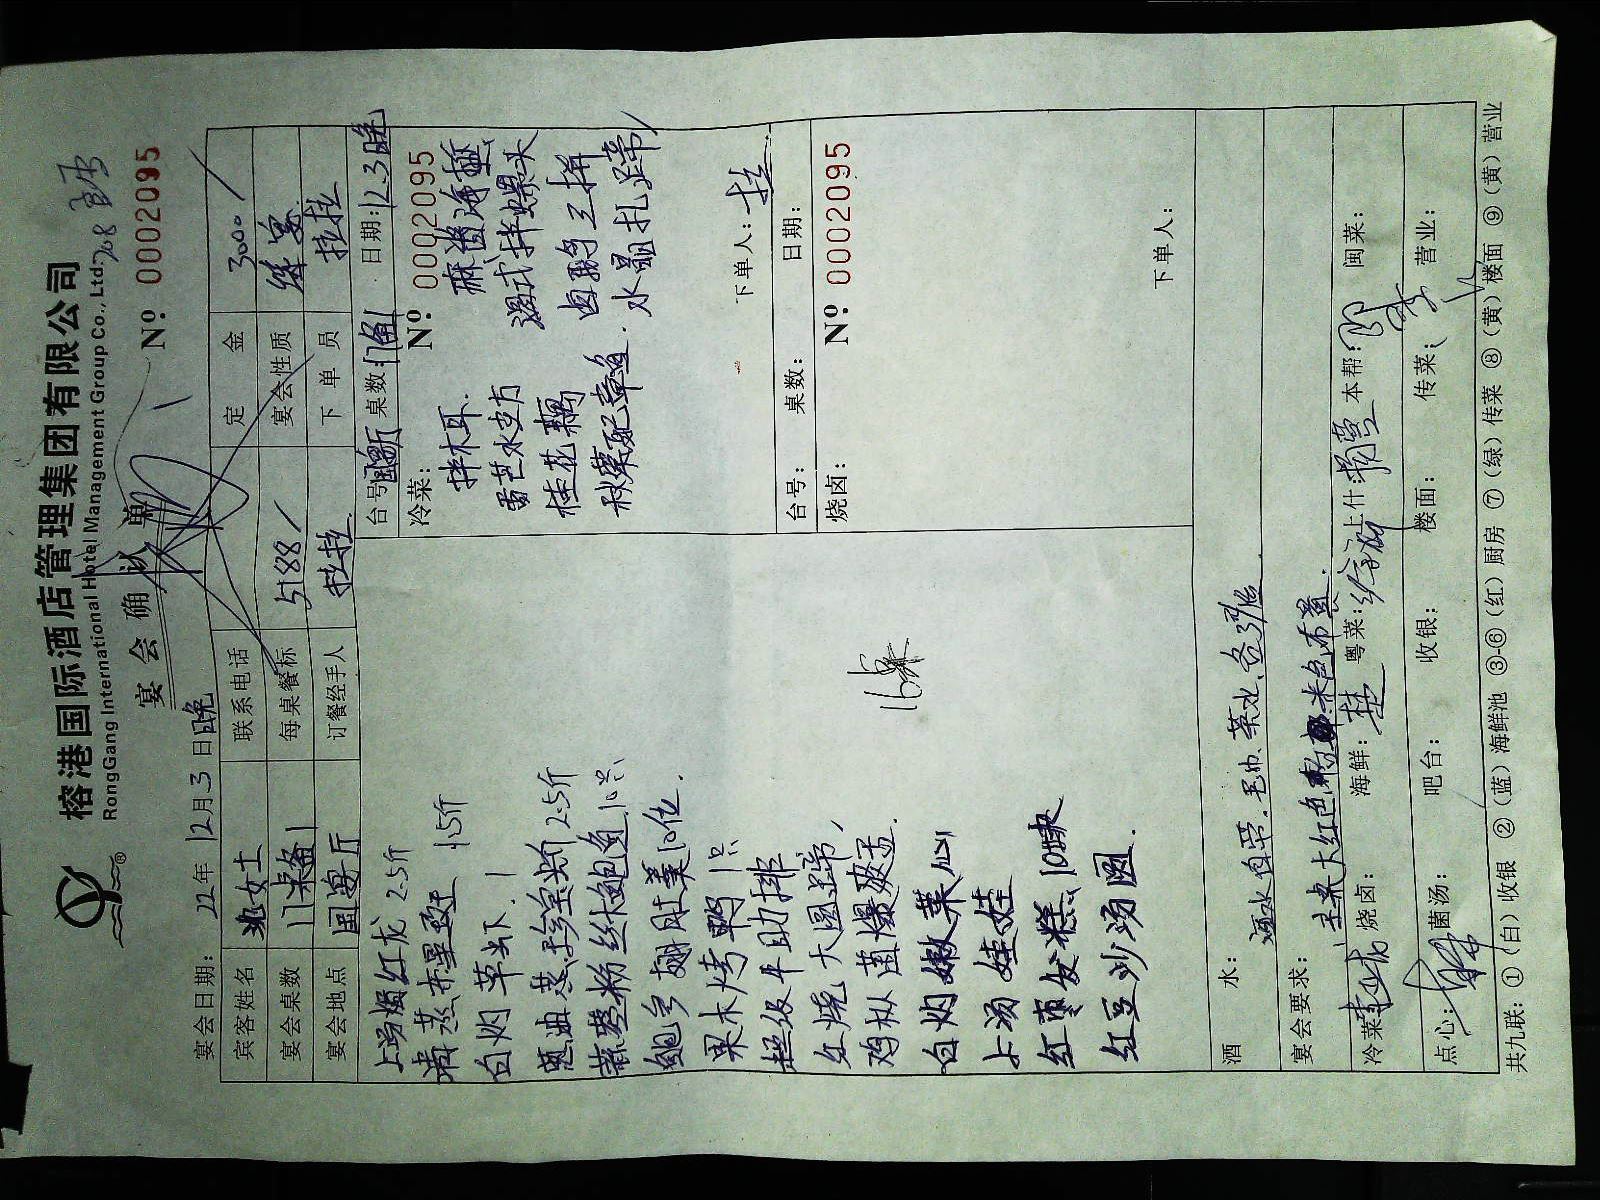 榕港国际酒店管理集团有限公司
RongGang International Hotel Management Group Co., Ltd.
宴会确认单
Nº 0002095
宴会日期: 22年12月3日晚
宾客姓名 女士 联系电话 定金 3000
宴会桌数 每桌餐标 5188 宴会性质
宴会地点 厅 订餐经手人 拉拉 下单员 拉拉
上汤焗红龙 2.5斤
清蒸东星斑 1.5斤
白灼草虾
葱油蒸珍宝蚧 2.5斤
蒜蓉粉丝鲍鱼 10只
鲍参翅肚羹 10位
果木烤鸭 1只
超级牛肋排
红烧大圆蹄
鸡枞菌爆
白灼嫩菜心
上汤娃娃
红枣发糕 10块
红豆沙汤圆
台号: 桌数: 日期: 12.3晚
冷菜: Nº 0002095
拌木耳 麻酱海蜇
桂花藕 卤鹅三拼
水晶扎蹄
下单人: 拉
台号: 桌数: 日期:
烧卤: Nº 0002095
下单人:
酒水: 酒水自带.毛巾、茶水、各
宴会要求: 大红色 米色布置.
冷菜: 烧卤: 海鲜: 粤菜: 上什: 本帮: 闽菜:
点心: 菌汤: 吧台: 收银: 楼面: 传菜: 营业:
共九联: ①(白)收银 ②(蓝)海鲜池 ③-⑥(红)厨房 ⑦(绿)传菜 ⑧(黄)楼面 ⑨(黄)营业